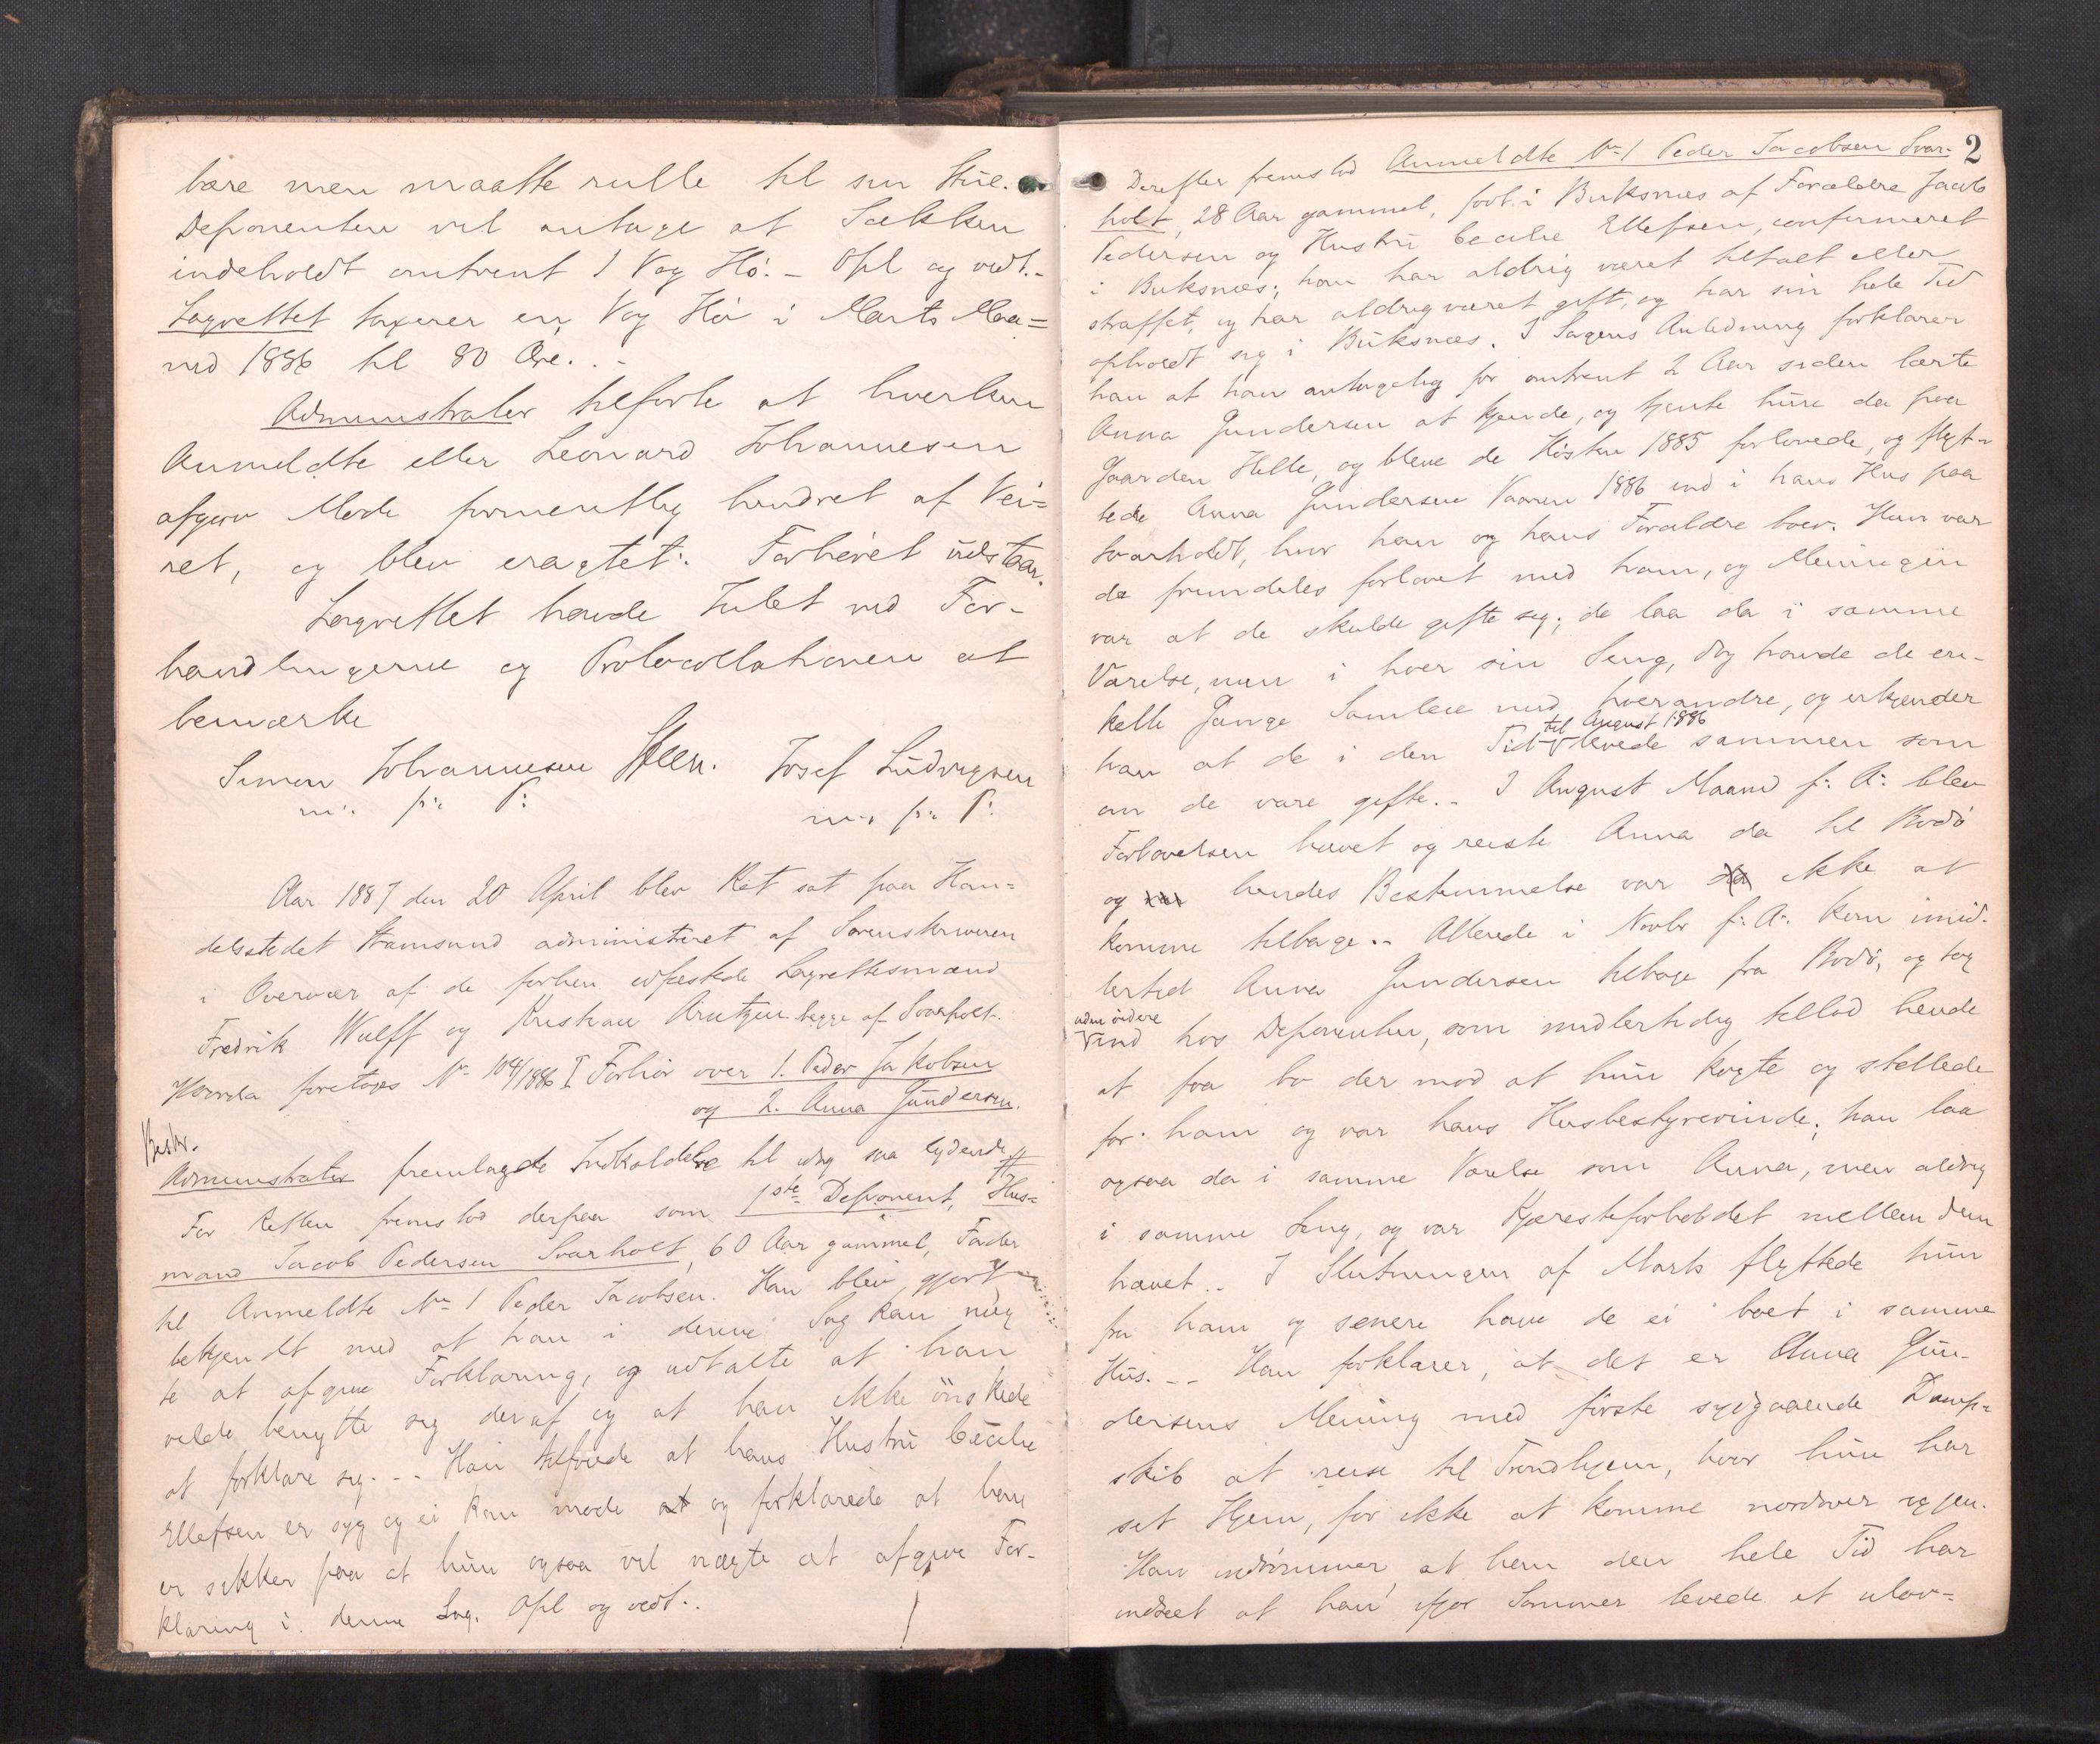 bære men maatte rulle til sin Stue.
Deponenten vil antage at Sækken
indeholdt omtrent 1 Vog Hø. - Opl og vedt. -
Lagrettet taxerer en Vog Hø i Marts Maa=
ned 1886 til 80 Øre. . -
Administrator tilførte at hverken
Anmeldte eller Leonard Johannesen
afgav Møde formentlig hindret af Vei=
ret, og blev eragtet: Forhøret udstaar.
Lagrettet havde Intet ved For-
handlingerne og Protocollationen at
bemærke
Simon Johannesen Steen. Josef Ludvigsen
m: p: P: m: p: P:
Aar 1887 den 20 April blev Ret sat paa Han=
delsstedet Stamsund administreret af Sorenskriveren
i Overvær af de forhen edfæstede Lagrettesmænd
Fredrik Wulff og Kristian Arntzen begge af Svarholt.
Hvorda foretoges Nr 104/1886 I Forhør over 1. Peder Jakobsen
og 2. Anna Gundersen.
Beskr.
Administrator fremlagde Indkaldelse til idag saa lydende #
For Retten fremstod derpaa som 1ste Deponent, Hus=
mand Jacob Pedersen Svarholt, 60 Aar gammel, Fader
til Anmeldte Nr 1 Peder Jacobsen. Han blev gjort
bekjendt med at han i denne Sag kan næg
te at afgive Forklaring, og udtalte at han
vilde benytte sig deraf og at han ikke önskede
at forklare sig. - - Han tilføiede at hans Hustru Cecilie
Ellefsen er syg og ei kan møde at og forklarede at han
er sikker paa at hun ogsaa vil nægte at afgive For-
klaring i denne Sag. Opl og vedt..
2
Derefter fremstod Anmeldte Nr 1 Peder Jacobsen Svar-
holt, 28 Aar gammel, født i Buksnæs af Forældre Jacob
Pedersen og Hustru Cecilie Ellefsen, confirmeret
i Buksnæs; han har aldrig været tiltalt eller
straffet, og har aldrig været gift, og har sin hele Tid
opholdt sig i Buksnæs. I Sagens Anledning forklarer
han at han antagelig for omtrent 2 Aar siden lærte
Anna Gundersen at kjende, og tjente hun da paa
Gaarden Helle, og bleve de Høsten 1885 forlovede, og flyt=
tede Anna Gundersen Vaaren 1886 ind i hans Hus paa
Svarholdt, hvor han og hans Forældre boer. Hun var
da fremdeles forlovet med ham, og Meningen
var at de skulde gifte sig; de laa da i samme
Værelse, men i hver sin Seng, dog havde de en-
kelte Gange Samleie med hverandre, og erkjender
han at de i den Tid til August 1886 levede sammen som
om de vare gifte. - I August Maaned f: A: blev
Forlovelsen hævet og reiste Anna da til Bodö
og hendes Bestemmelse var ikke at
komme tilbage. - Allerede i Novbr f: A: kom imid-
lertid Anna Gundersen tilbage fra Bodö, og tog
uden videre ind hos Deponenten, som midlertidig tillod hende
at faa bo der mod at hun kogte og stellede
for ham og var hans Husbestyrerinde; han laa
ogsaa da i samme Værelse som Anna, men aldrig
i samme Seng, og var Kjæresteforholdet mellem dem
hævet. - I Slutningen af Marts flyttede hun
fra ham og senere have de ei boet i samme
Hus. - - Han forklarer, at det er Anna Gun-
dersens Mening med første sydgaaende Damp=
skib at reise til Trondhjem, hvor hun har
sit Hjem, for ikke at komme nordover igjen.
Han indrømmer at han den hele Tid har
indseet at han ifjor Sommer levede et ulov=